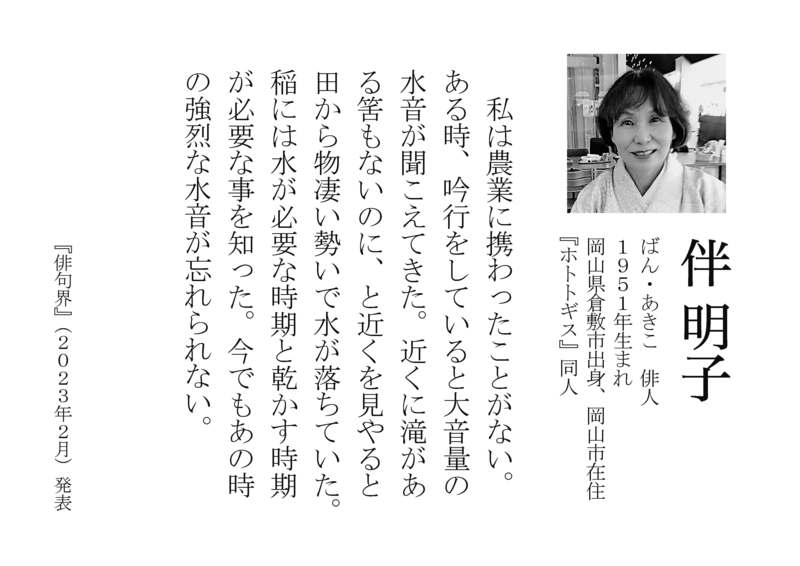 伴 明子
ばん・あきこ 俳人
1951年生まれ
岡山県倉敷市出身、岡山市在住
『ホトトギス』同人
私は農業に携わったことがない。
ある時、吟行をしていると大音量の
水音が聞こえてきた。近くに滝があ
る筈もないのに、と近くを見やると
田から物凄い勢いで水が落ちていた。
稲には水が必要な時期と乾かす時期
が必要な事を知った。今でもあの時
の強烈な水音が忘れられない。
『俳句界』（2023年2月）発表